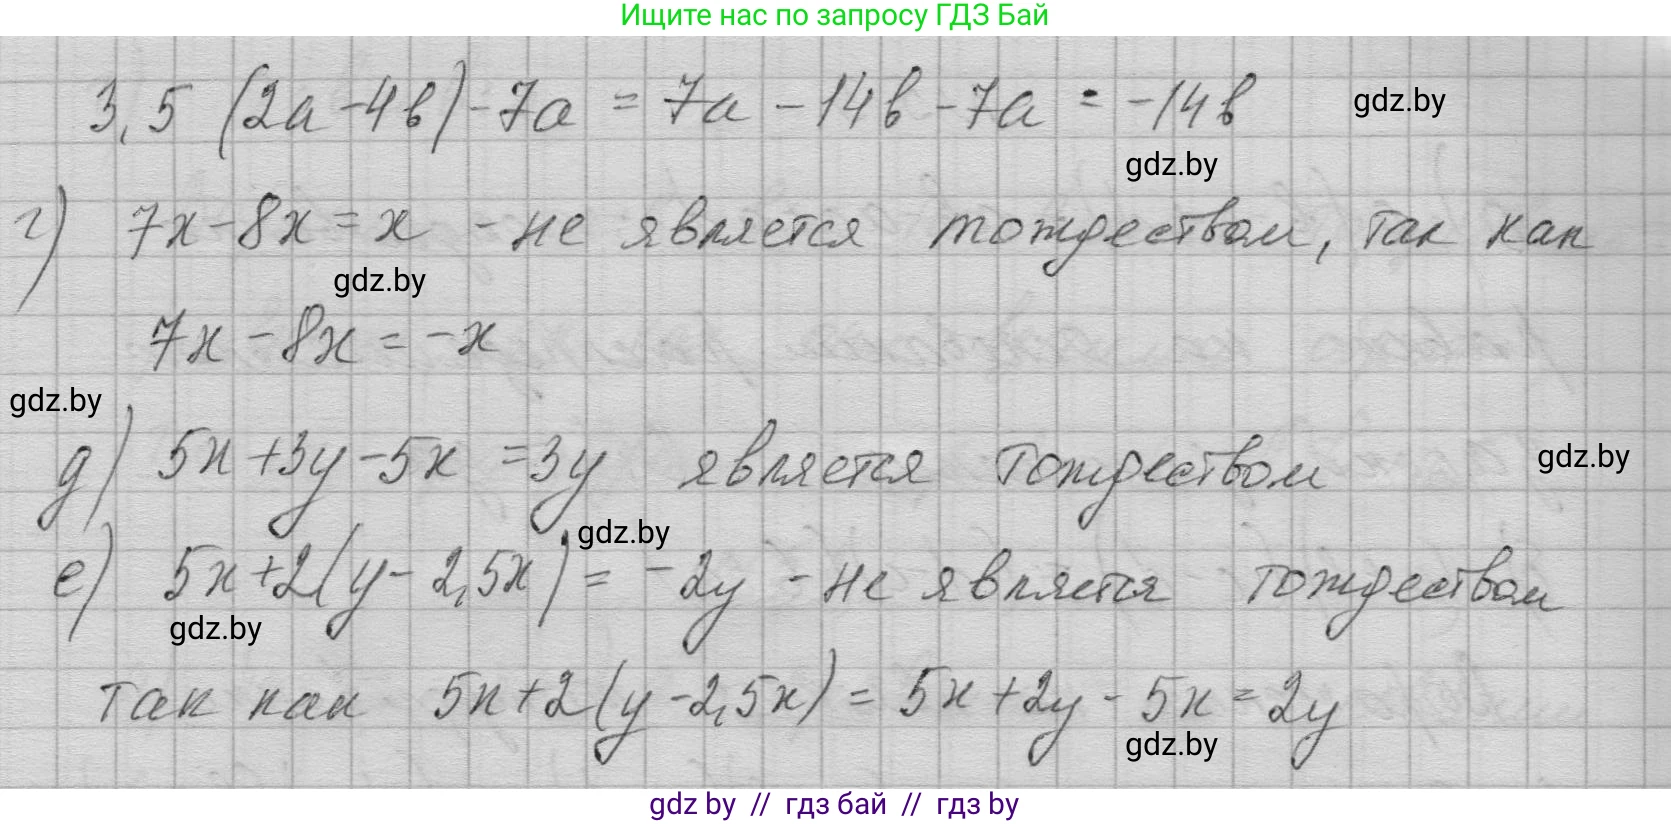 Ищите нас по запросу ГДЗ Бай
3,5 (2a-4b)-7a = 7a-14b-7a = -14b
gdz.by
gdz.by
г) 7x-8x=x - не является тождеством, так как
gdz.by
7x-8x=-x
gdz.by
д) 5x+3y-5x =3y является тождеством
gdz.by
gdz.by
е) 5x+2(y-2,5x)=-2y - не является тождеством
gdz.by
так как 5x+2(y-2,5x)=5x+2y-5x=2y
gdz.by
gdz by // гдз бай // гдз by